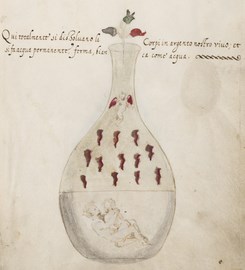 Qui totalmente si dissoluano li Corpi in argento nostro viuo, et
si fa acqua permanente, ferma, bian ca come acqua.